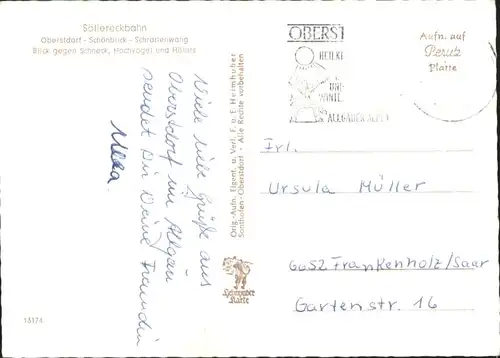 Söllereckbahn
Oberstdorf - Schönblick - Schrattenwang
Blick gegen Schneck, Hochvogel und Höfats
Viele liebe Grüße aus
Oberstdorf im Allgäu
sendet Dir Deine Freundin
13174
Orig.-Aufn. Eigent. u. Verl. F. u. E. Heimhuber
Sonthofen-Oberstdorf - Alle Rechte vorbehalten
Heimhuber
Karte
OBERST
HEILKL
UND
WINTE
ALLGÄUER ALPEN
Aufn. auf
Perutz
Platte
Frl.
Ursula Müller
6652 Frankenholz/Saar
Gartenstr. 16